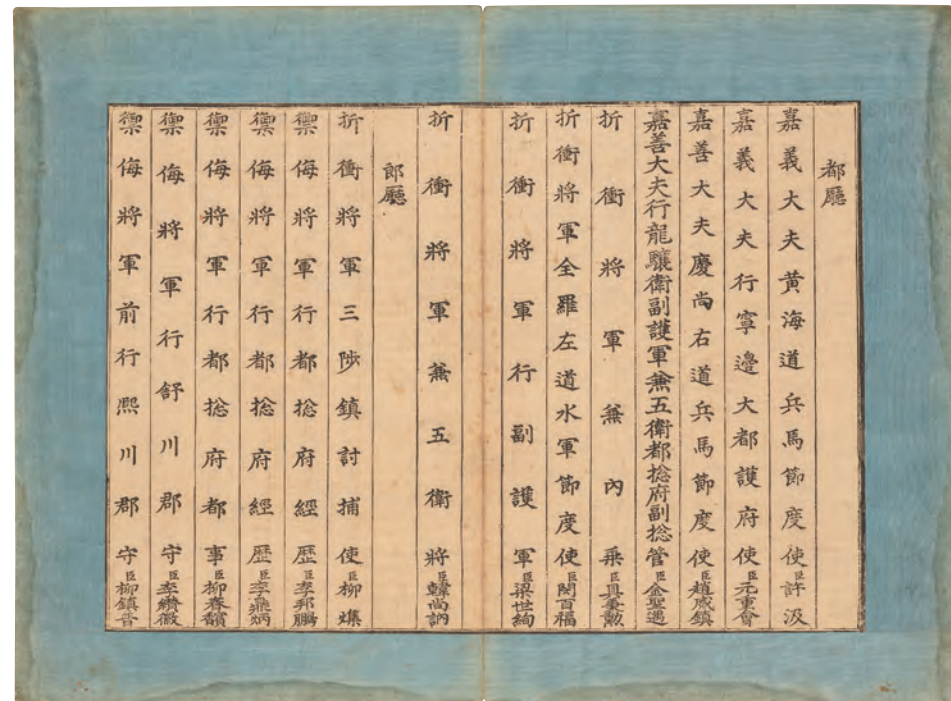 都廳
嘉義大夫黃海道兵馬節度使臣許汲
嘉義大夫行寧邊大都護府使臣元重會
嘉善大夫慶尙右道兵馬節度使臣趙威鎭
嘉善大夫行龍驤衛副護軍兼五衛都捴府副捴管臣金聖遇
折衝將軍兼內乗臣具秉勳
折衝將軍全羅左道水軍節度使臣閔百福
折衝將軍行副護軍臣梁世絢
折衝將軍兼五衛將臣韓尙訥
郎廳
折衝將軍三陟鎭討捕使臣柳爃
禦侮將軍行都捴府經歷臣李邦鵬
禦侮將軍行都捴府經歷臣李秉炳
禦侮將軍行都捴府都事臣柳春馥
禦侮將軍行舒川郡守臣李纘徽
禦侮將軍前行熙川郡守臣柳鎭普